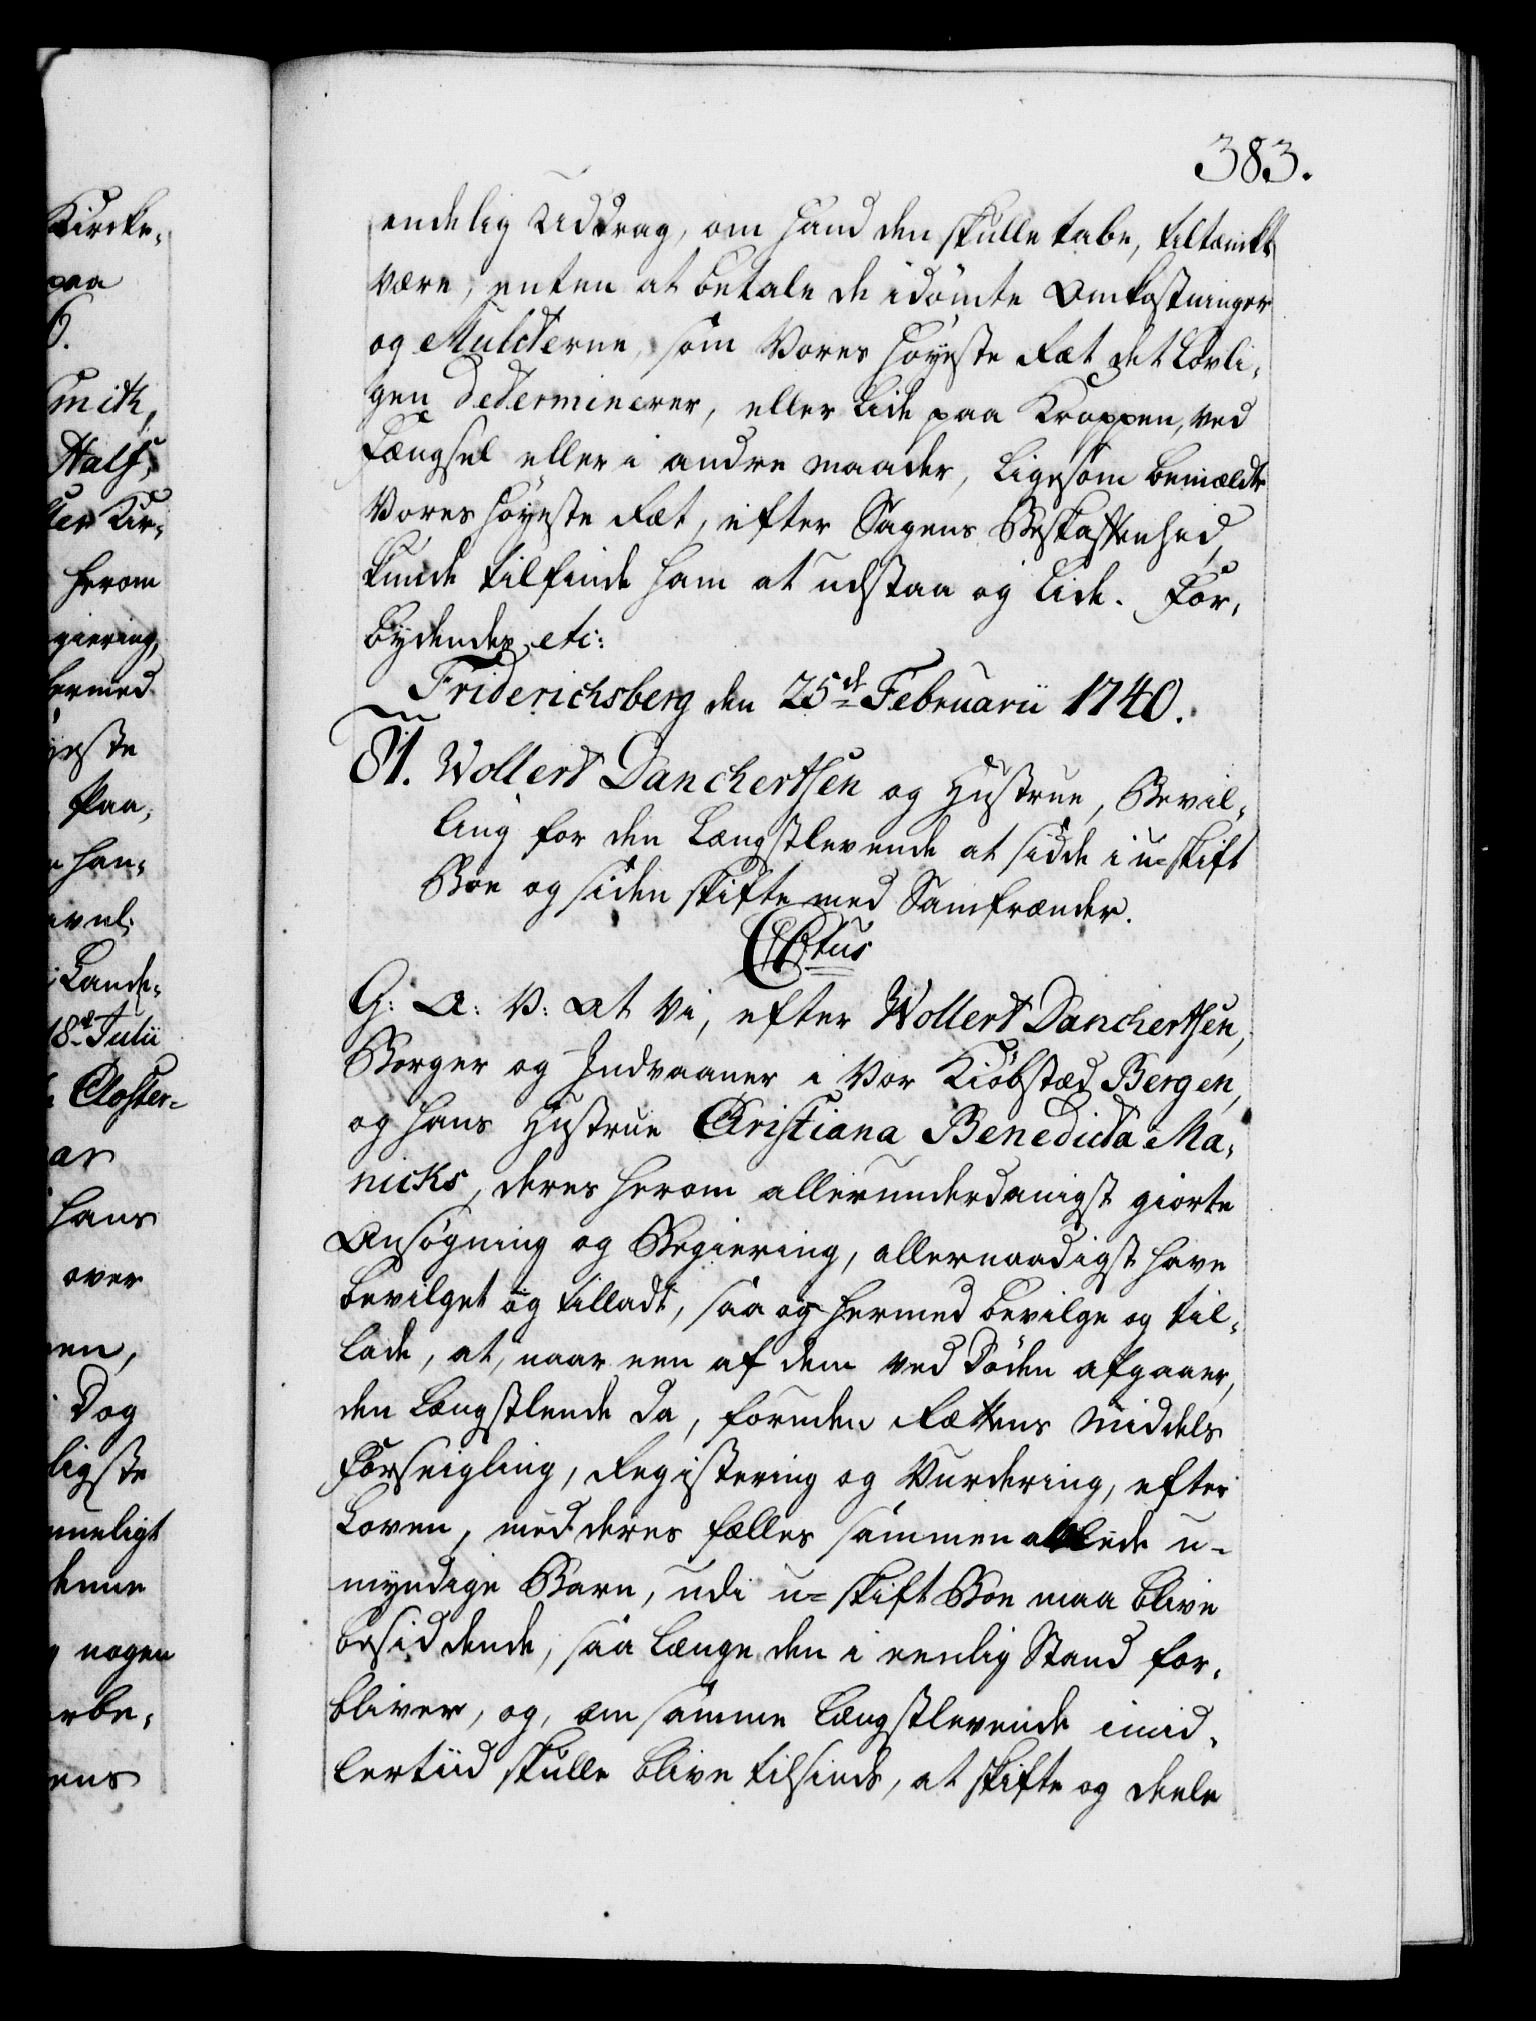 383.
endelig Uddrag, om hand den skulle tabe, tiltænkt
være, enten at betale de idömte Omkostninger
og Mulcterne, som Vores Höyeste Ræt det lovli-
gen determinerer, eller lide paa Kroppen, ved
Fængsel eller i andre maader, ligesom bemældte
Vores Höyeste Ræt, efter Sagens Beskaffenhed,
kunde tilfinde ham at udstaa og lide. For-
bydendes etc:
Friderichsberg den 25de Februarii 1740.
81. Wollert Danchertsen og Hustrue, Bevil-
ling for den Længstlevende at sidde i u-skift
Boe og siden skifte med Samfrænder.
C6tus
G: A: V: at Vi, efter Wollert Danchertsen,
Borger og Indvaaner i Vor Kiöbstæd Bergen,
og hans Hustrue Christiana Benedicta Ma-
nicks, deres herom allerunderdanigst giorte
Ansögning og Begiering, allernaadigst have
bevilget og tilladt, saa og hermed bevilge og til-
lade, at, naar een af dem ved Döden afgaaer,
den Længstlende da, foruden Rættens Middels
Forseigling, Registering og Vurdering, efter
Loven, med deres fælles sammen avlede u-
myndige Barn, udi u-skift Boe maa blive
besiddende, saa længe den i eenlig Stand for-
bliver, og, om samme Længstlevende imid-
lertiid skulle blive tilsinds, at skifte og deele
Kircke-
paa
6.
Smith,
Half-
ter Kir-
herom
giering,
hermed
yeste
paa,
han-
Lands-
18de Julii
Closter-
ar
hans
over
en,
Dog
ligste
denne
nogen
rbe-
ens